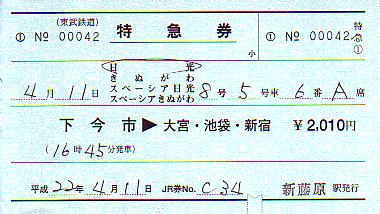 (東武鉄道)
① № 00042 特急券 ① № 00042 特急①
小
日光
きぬがわ
4月11日 スペーシア日光 8号 5号車 6番A席
スペーシアきぬがわ
下今市▶大宮・池袋・新宿 ¥2,010円
(16時45分発車)
平成22年4月11日 JR券No. C34 新藤原 駅発行